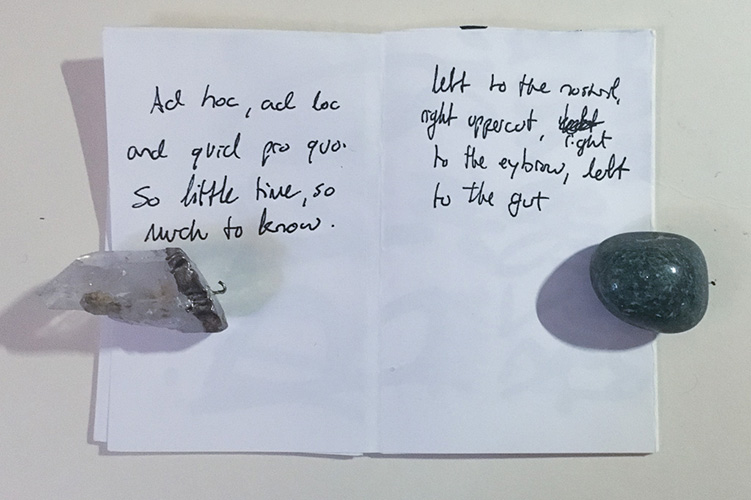 Ad hoc, ad loc
and quid pro quo.
So little time, so
much to know.
left to the nostril,
right uppercut, right
to the eybrow, left
to the gut